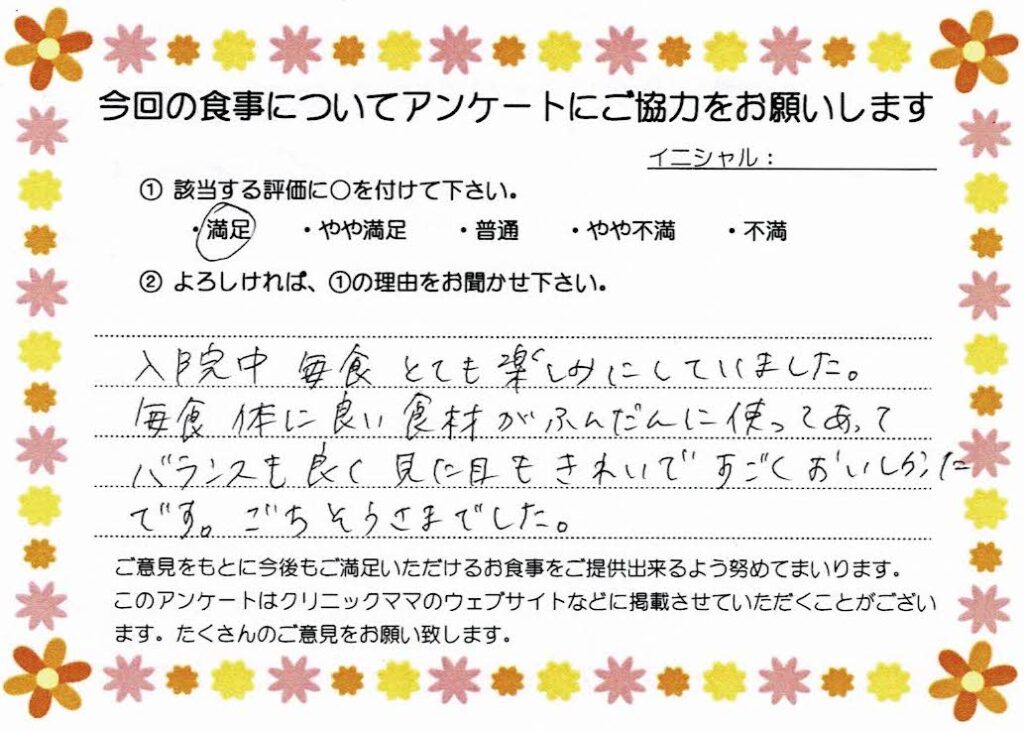 今回の食事についてアンケートにご協力をお願いします
イニシャル：
① 該当する評価に○を付けて下さい。
・満足 ・やや満足 ・普通 ・やや不満 ・不満
② よろしければ、①の理由をお聞かせ下さい。
入院中 毎食 とても 楽しみにしていました。
毎食 体に良い食材がふんだんに使ってあって
バランスも良く 見た目もきれいで すごくおいしかった
です。ごちそうさまでした。
ご意見をもとに今後もご満足いただけるお食事をご提供出来るよう努めてまいります。
このアンケートはクリニックママのウェブサイトなどに掲載させていただくことがござい
ます。たくさんのご意見をお願い致します。